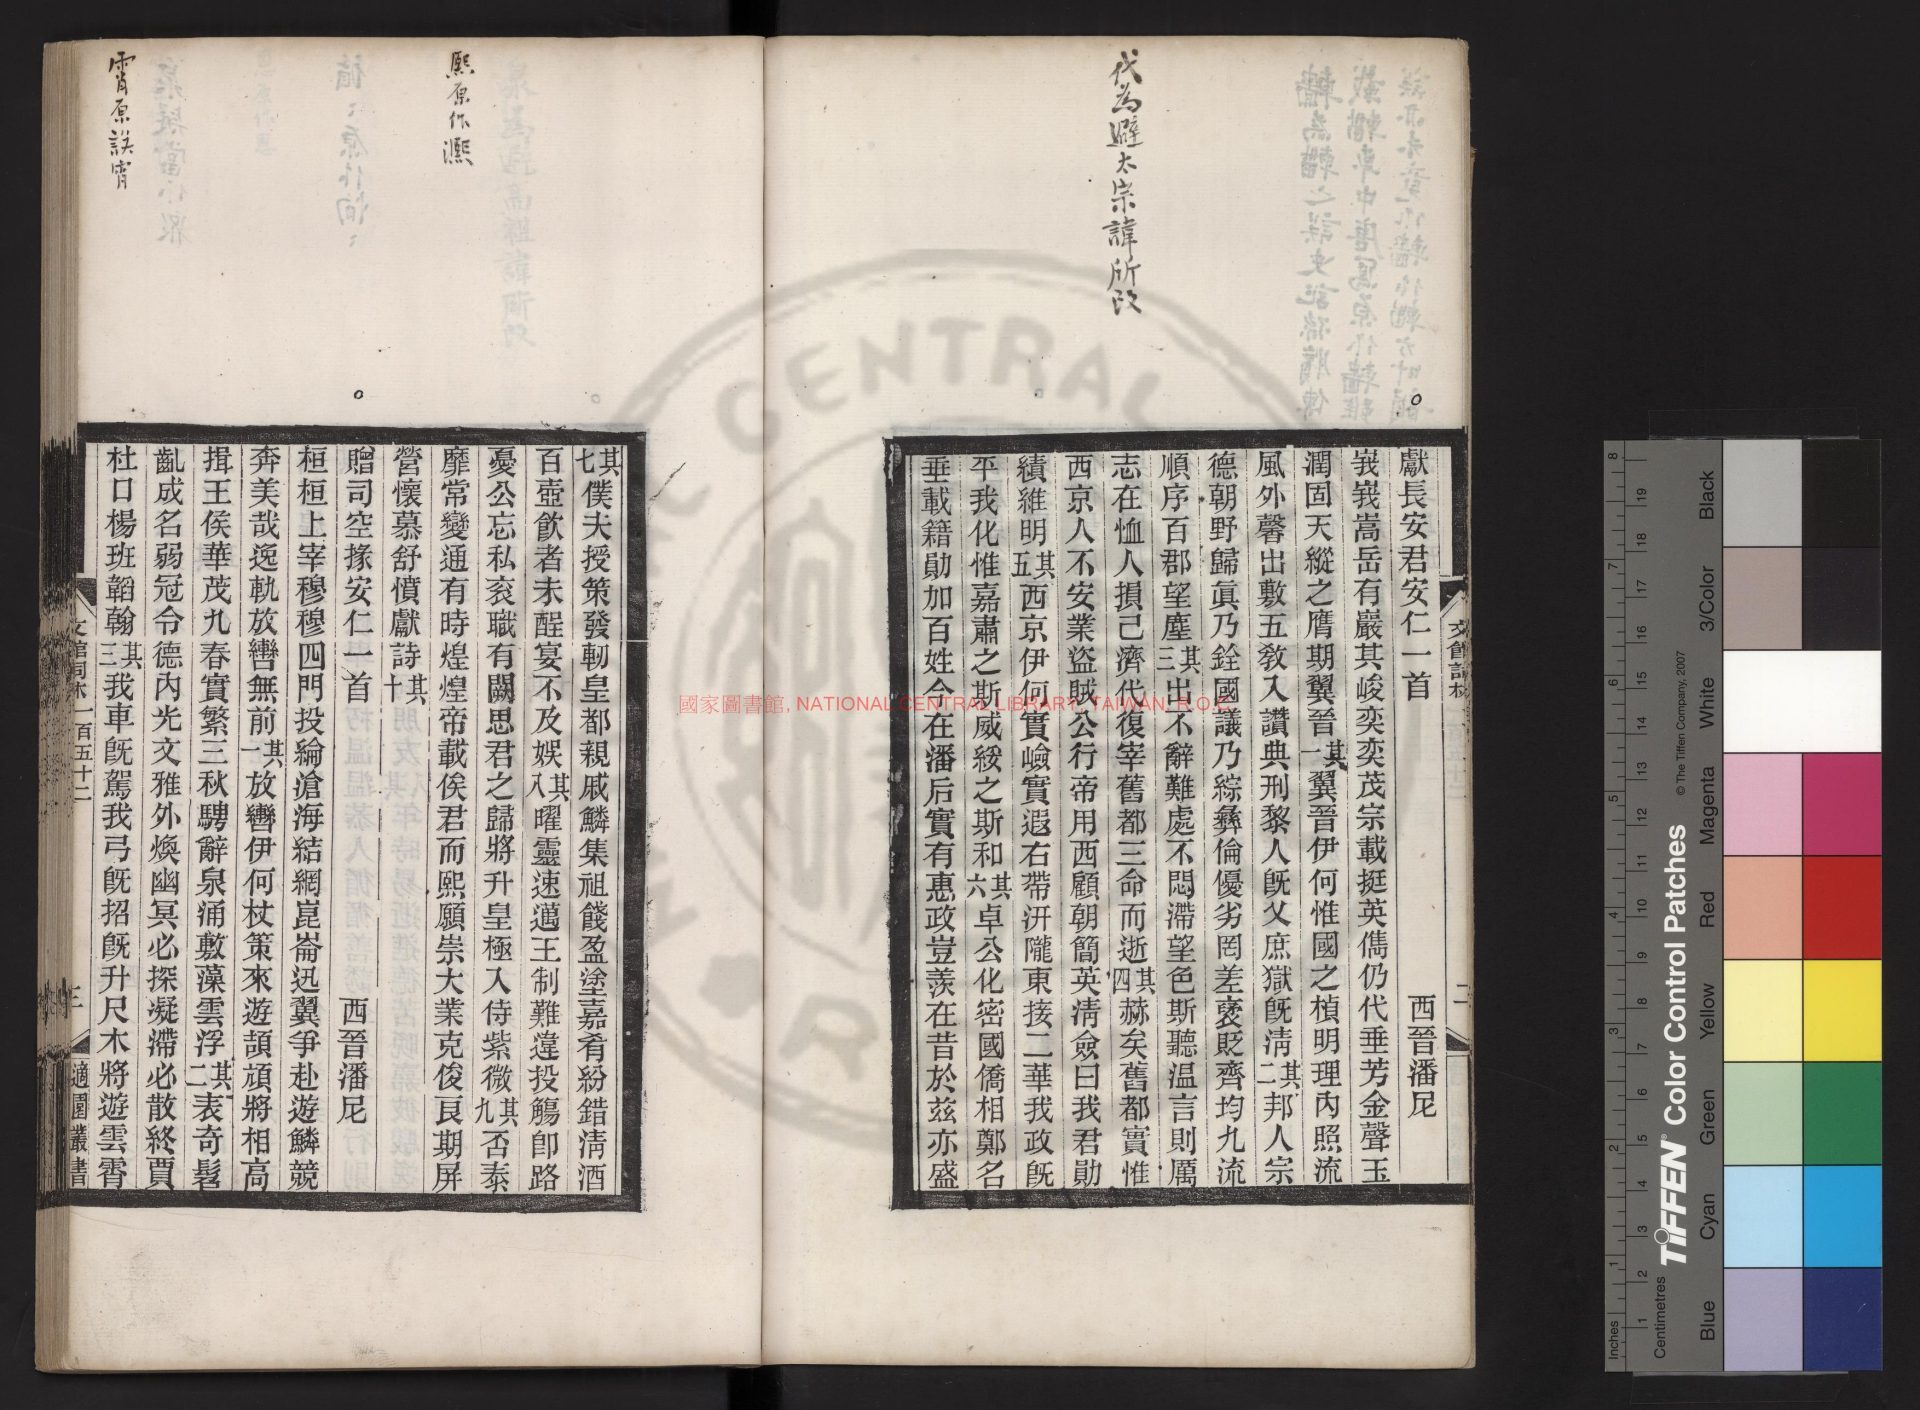 代為避太宗諱所改
獻長安君安仁一首 西晉潘尼
峩峩嵩岳有巖其峻奕奕茂宗載挺英儁仍代垂芳金聲玉
潤固天縱之膺期翼晉其一翼晉伊何惟國之楨明理內照流
風外馨出敷五敎入讚典刑黎人旣乂庶獄旣淸其二邦人宗
德朝野歸眞乃銓國議乃綜彝倫優劣罔差襃貶齊均九流
順序百郡望塵其三出不辭難處不悶滯望色斯聽温言則厲
志在恤人損己濟代復宰舊都三命而逝其四赫矣舊都實惟
西京人不安業盜賊公行帝用西顧朝簡英淸僉曰我君勛
績維明其五西京伊何實嶮實遐右帶汧隴東接二華我政旣
平我化惟嘉肅之斯威綏之斯和其六卓公化密國僑相鄭名
垂載籍勛加百姓今在潘后實有惠政豈羨在昔於兹亦盛
文館詞林
二
熙原作凞
霄原誤宵
其七僕夫授策發軔皇都親戚鱗集祖餞盈塗嘉肴紛錯淸酒
百壺飮者未酲宴不及娛其八曜靈速邁王制難違投觴卽路
憂公忘私衮職有闕思君之歸將升皇極入侍紫微其九否泰
靡常變通有時煌煌帝載俟君而熙願崇大業克俊艮期屏
營懷慕舒憤獻詩其十
贈司空掾安仁一首 西晉潘尼
桓桓上宰穆穆四門投綸滄海結網崑崙迅翼爭赴遊鱗競
奔美哉逸軌放轡無前其一放轡伊何杖策來遊頡頏將相高
揖王侯華茂九春實繁三秋騁辭泉涌敷藻雲浮其二表奇髫
齓成名弱冠令德內光文雅外煥幽冥必探凝滯必散終賈
杜口楊班韜翰其三我車旣駕我弓旣招旣升尺木將遊雲霄
文館詞林一百五十二
三
適園叢書
國家圖書館, NATIONAL CENTRAL LIBRARY, TAIWAN, R.O.C
CENTRAL
TIFFEN® Color Control Patches
© The Tiffen Company, 2007
Inches
Centimetres
Blue
Cyan
Green
Yellow
Red
Magenta
White
3/Color
Black